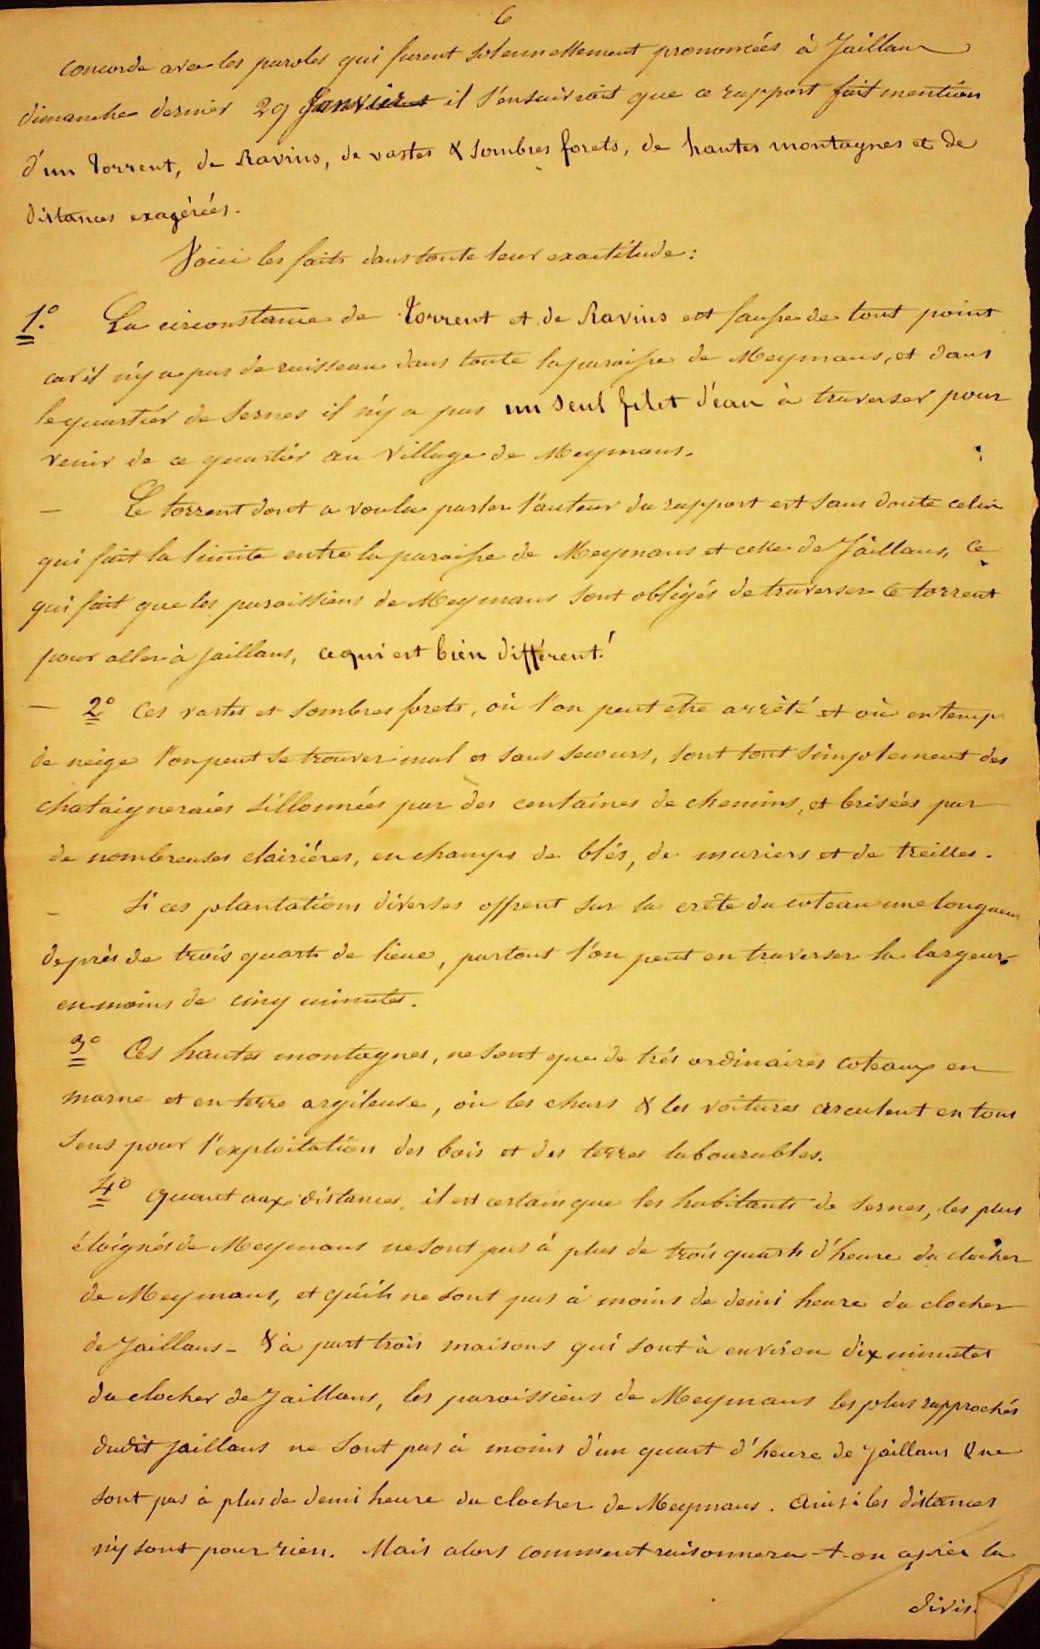 6
concorde avec les paroles qui furent solennellement prononcées à Jaillans
dimanche dernier 29 Janvier il s'ensuivrait que ce rapport fait mention
d'un Torrent, de Ravins, de vastes & sombres forets, de hautes montagnes et de
distances exagérées.
Voici les faits dans toute leur exactitude :
1.° La circonstance de Torrent et de Ravins est fausse de tout point
car il n'y a pas de ruisseau dans toute la paroisse de Meymans, et dans
le quartier de Sernes il n'y a pas un seul filet d'eau à traverser pour
venir de ce quartier au Village de Meymans.
— Le torrent dont a voulu parler l'auteur du rapport est sans doute celui
qui fait la limite entre la paroisse de Meymans et celle de Jaillans, ce
qui fait que les paroissiens de Meymans sont obligés de traverser ce torrent
pour aller à Jaillans, ce qui est bien différent !
— 2° Ces vastes et sombres forets, où l'on peut etre arrêté et où en temps
de neige l'on peut se trouver mal et sans secours, sont tout simplement des
chataigneraies sillonnées par des centaines de chemins, et brisées par
de nombreuses clairières, en champs de blés, de muriers et de treilles.
— Si ces plantations diverses offrent sur la crête du coteau une longueur
de près de trois quarts de lieue, partout l'on peut en traverser la largeur
en moins de cinq minutes.
3° Ces hautes montagnes, ne sont que de très ordinaires coteaux en
marne et en terre argileuse, où les chars & les voitures circulent en tous
sens pour l'exploitation des bois et des terres labourables.
4° Quant aux distances, il est certain que les habitants de Sernes, les plus
éloignés de Meymans ne sont pas à plus de trois quarts d'heure du clocher
de Meymans, et qu'ils ne sont pas à moins de demi heure du clocher
de Jaillans - & à part trois maisons qui sont à environ dix minutes
du clocher de Jaillans, les paroissiens de Meymans les plus rapprochés
dudit Jaillans ne sont pas à moins d'un quart d'heure de Jaillans & ne
sont pas à plus de demi heure du clocher de Meymans. Ainsi les distances
n'y sont pour rien. Mais alors comment raisonnera-t-on après la
divis.